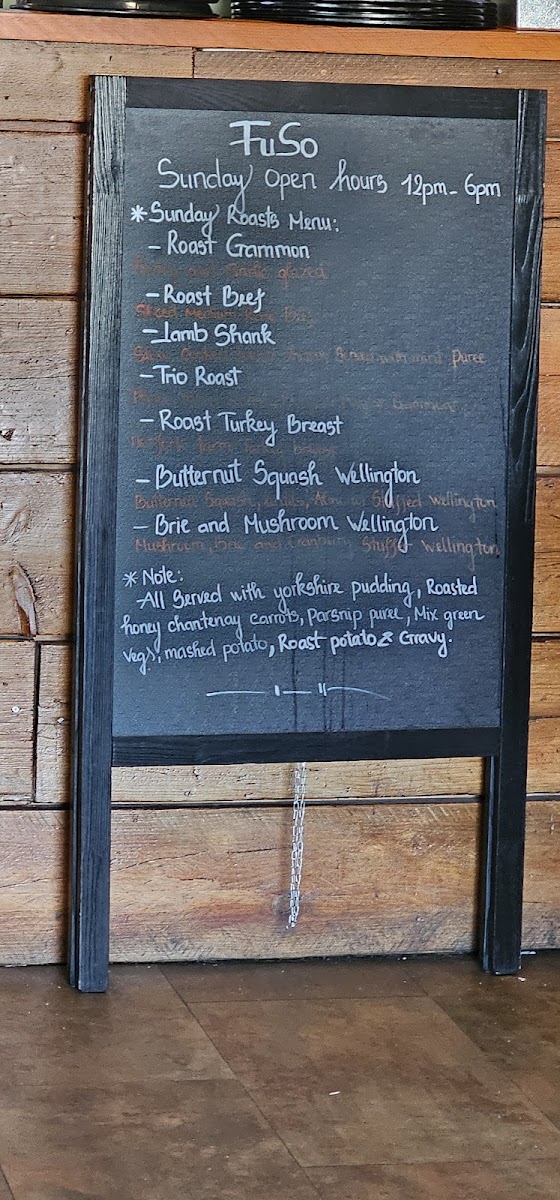 FuSo
Sunday Open hours 12pm - 6pm
* Sunday Roasts Menu:
- Roast Gammon
Honey and Garlic glazed
- Roast Beef
Sliced Medium Rare
- Lamb Shank
Slow Served with mint Puree
- Trio Roast
Gammon
- Roast Turkey Breast
- Butternut Squash Wellington
Butternut Squash, Stuffed Wellington
- Brie and Mushroom Wellington
Mushroom, Brie and Cranberry Stuffer Wellington
* Note:
All Served with yorkshire pudding, Roasted
honey chantenay carrots, Parsnip puree, Mix green
vegs, mashed potato, Roast potato & Gravy.